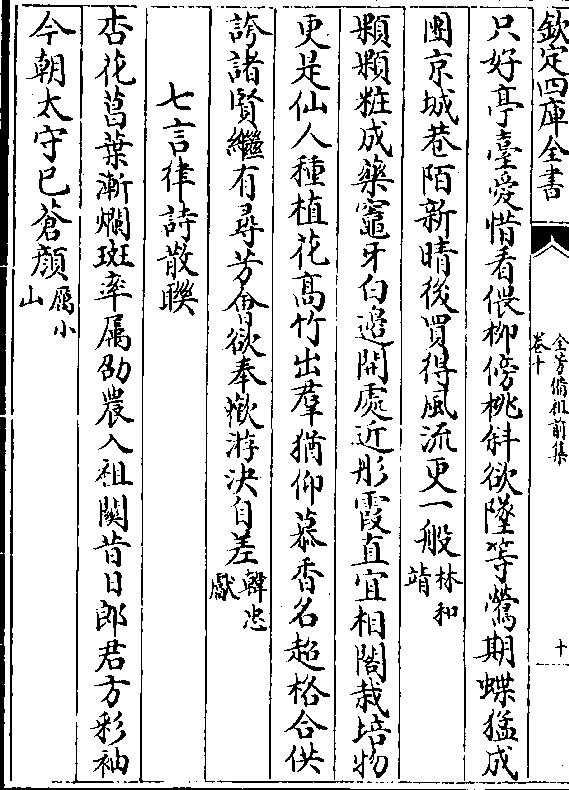 欽定四庫全書
全芳備祖前集
卷十
十
只好亭臺愛惜看偎柳傍桃斜欲墜等鶯期蝶猛成
團京城巷陌新晴後買得風流更一般林和靖
顆顆粧成藥竈牙白邊開處近彤霞直宜相閤栽培物
更是仙人種植花高竹出羣猶仰慕香名超格合供
誇諸賢繼有尋芳會欲奉歡游決自差韓忠獻
七言律詩散聯
杏花菖葉漸斕斑率屬勸農入祖關昔日郎君方彩袖
今朝太守已蒼顔厲小山